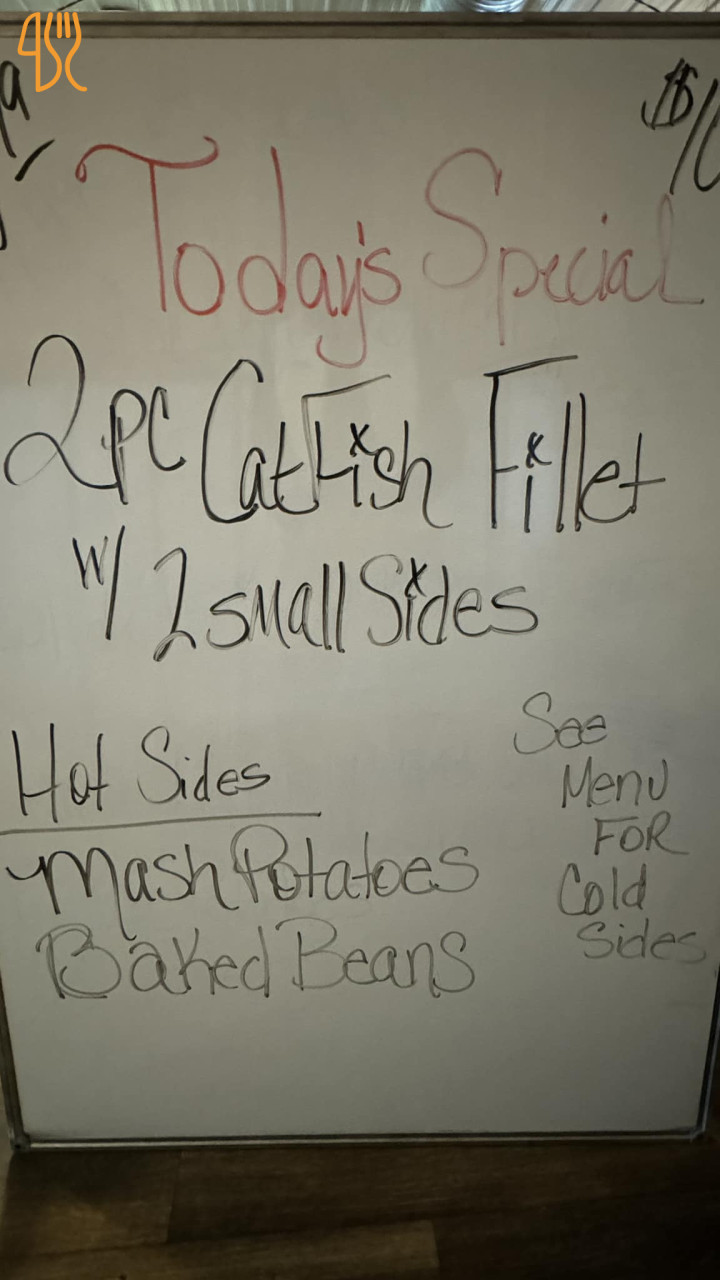 Today's Special
2PC CatFish Fillet
w/ 2 small Sides
Hot Sides
Mash Potatoes
Baked Beans
See
Menu
FOR
Cold
Sides